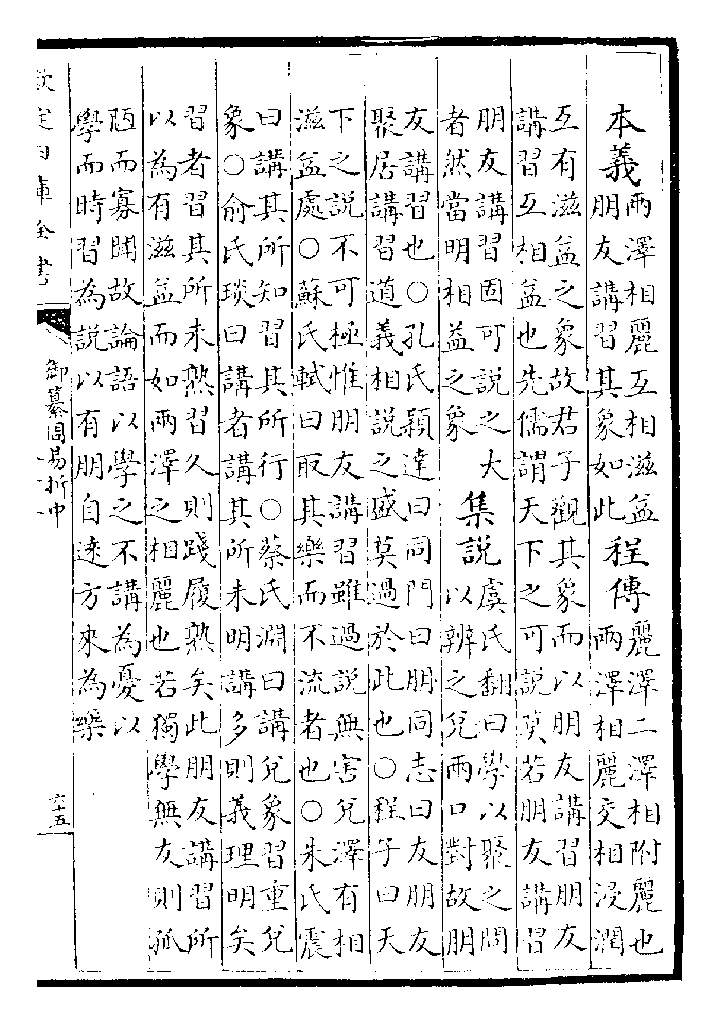 本義
兩澤相麗互相滋益
朋友講習其象如此
程傳
麗澤二澤相附麗也
兩澤相麗交相浸潤
互有滋益之象故君子觀其象而以朋友講習朋友
講習互相益也先儒謂天下之可說莫若朋友講習
朋友講習固可說之大
者然當明相益之象
集說
虞氏翻曰學以聚之問
以辨之兌兩口對故朋
友講習也○孔氏穎達曰同門曰朋同志曰友朋友
聚居講習道義相說之盛莫過於此也○程子曰天
下之說不可極惟朋友講習雖過說無害兌澤有相
滋益處○蘇氏軾曰取其樂而不流者也○朱氏震
曰講其所知習其所行○蔡氏淵曰講兌象習重兌
象○俞氏琰曰講者講其所未明講多則義理明矣
習者習其所未熟習久則踐履熟矣此朋友講習所
以為有滋益而如兩澤之相麗也若獨學無友則孤
陋而寡聞故論語以學之不講為憂以
學而時習為說以有朋自遠方來為樂
欽定四庫全書
御纂周易折中
六十五